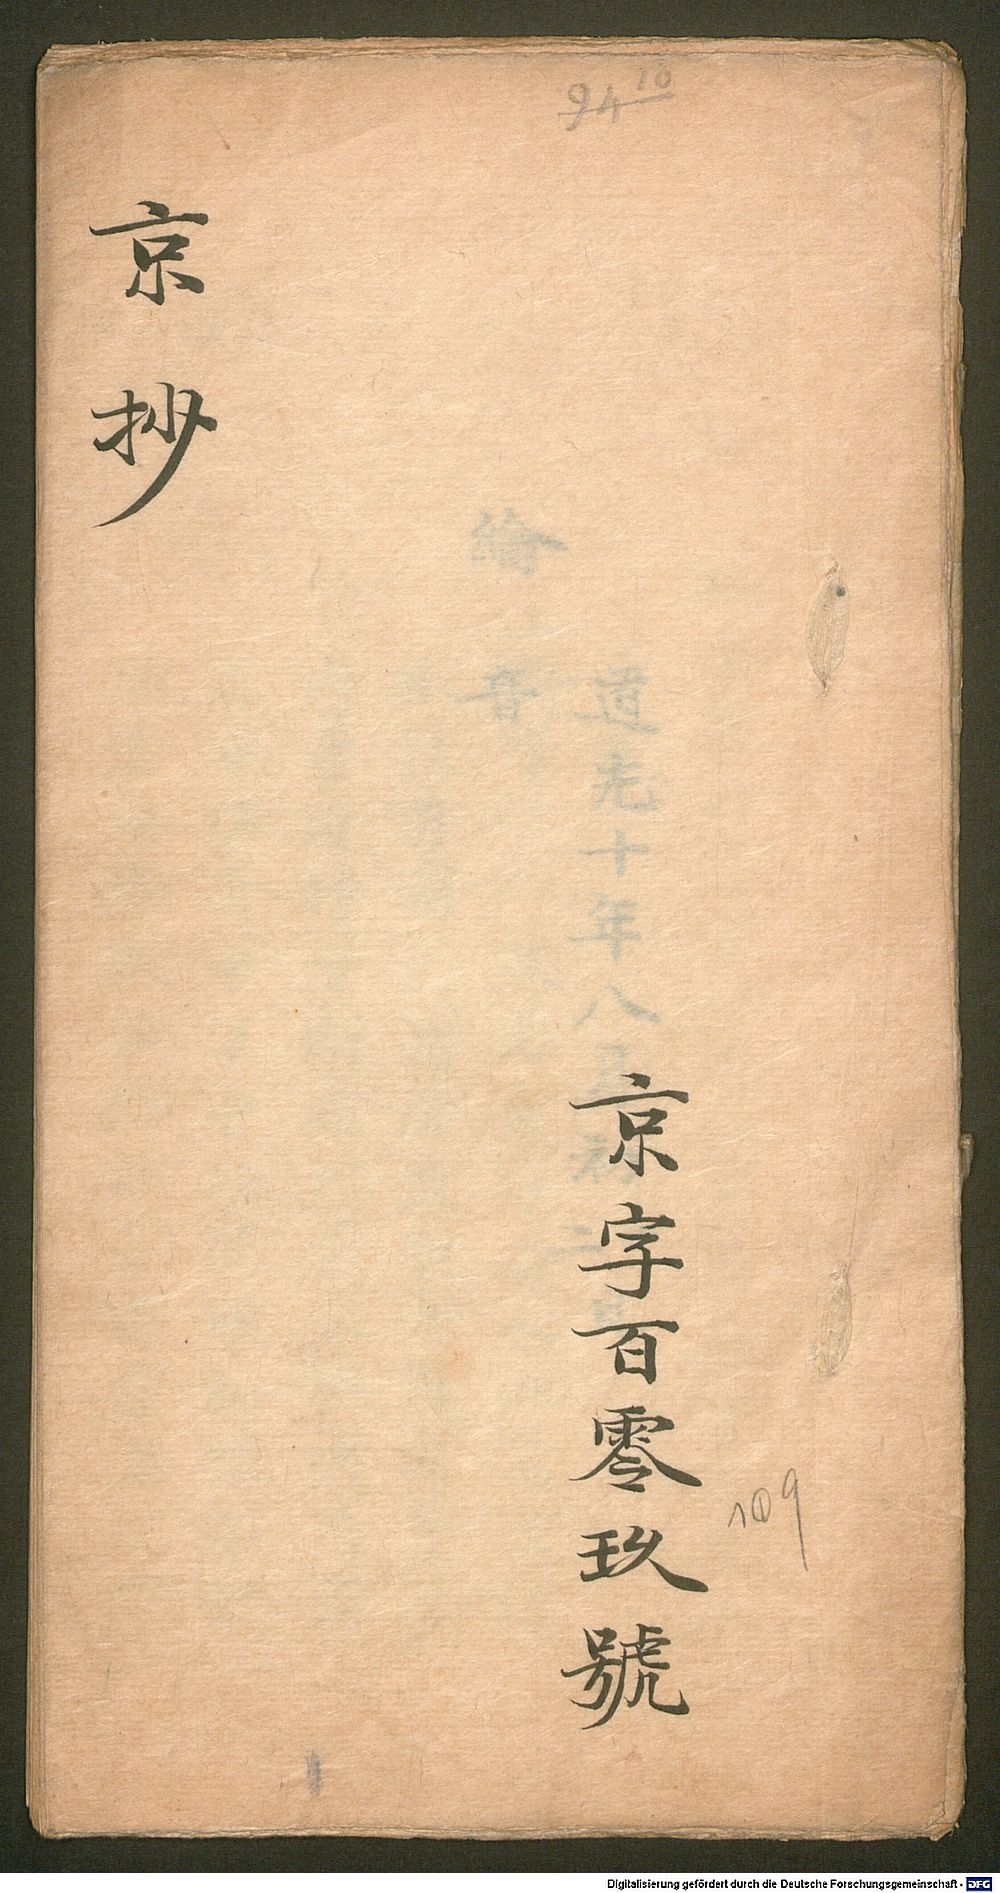 94 18
京字百零玖號
109
京抄
綸音
道光十年八月初二日
Digitalisierung gefördert durch die Deutsche Forschungsgemeinschaft - DFG